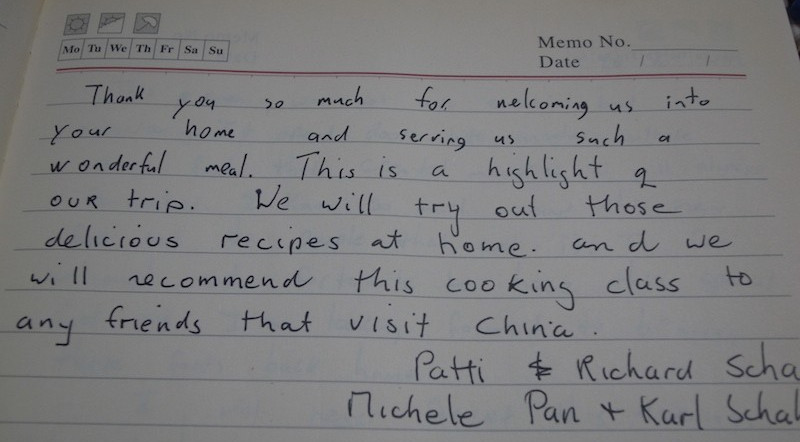 Mo Tu We Th Fr Sa Su
Memo No.
Date / /
Thank you so much for welcoming us into
your home and serving us such a
wonderful meal. This is a highlight of
our trip. We will try out those
delicious recipes at home. and we
will recommend this cooking class to
any friends that visit China.
Patti & Richard Scha
Michele Pan + Karl Schal